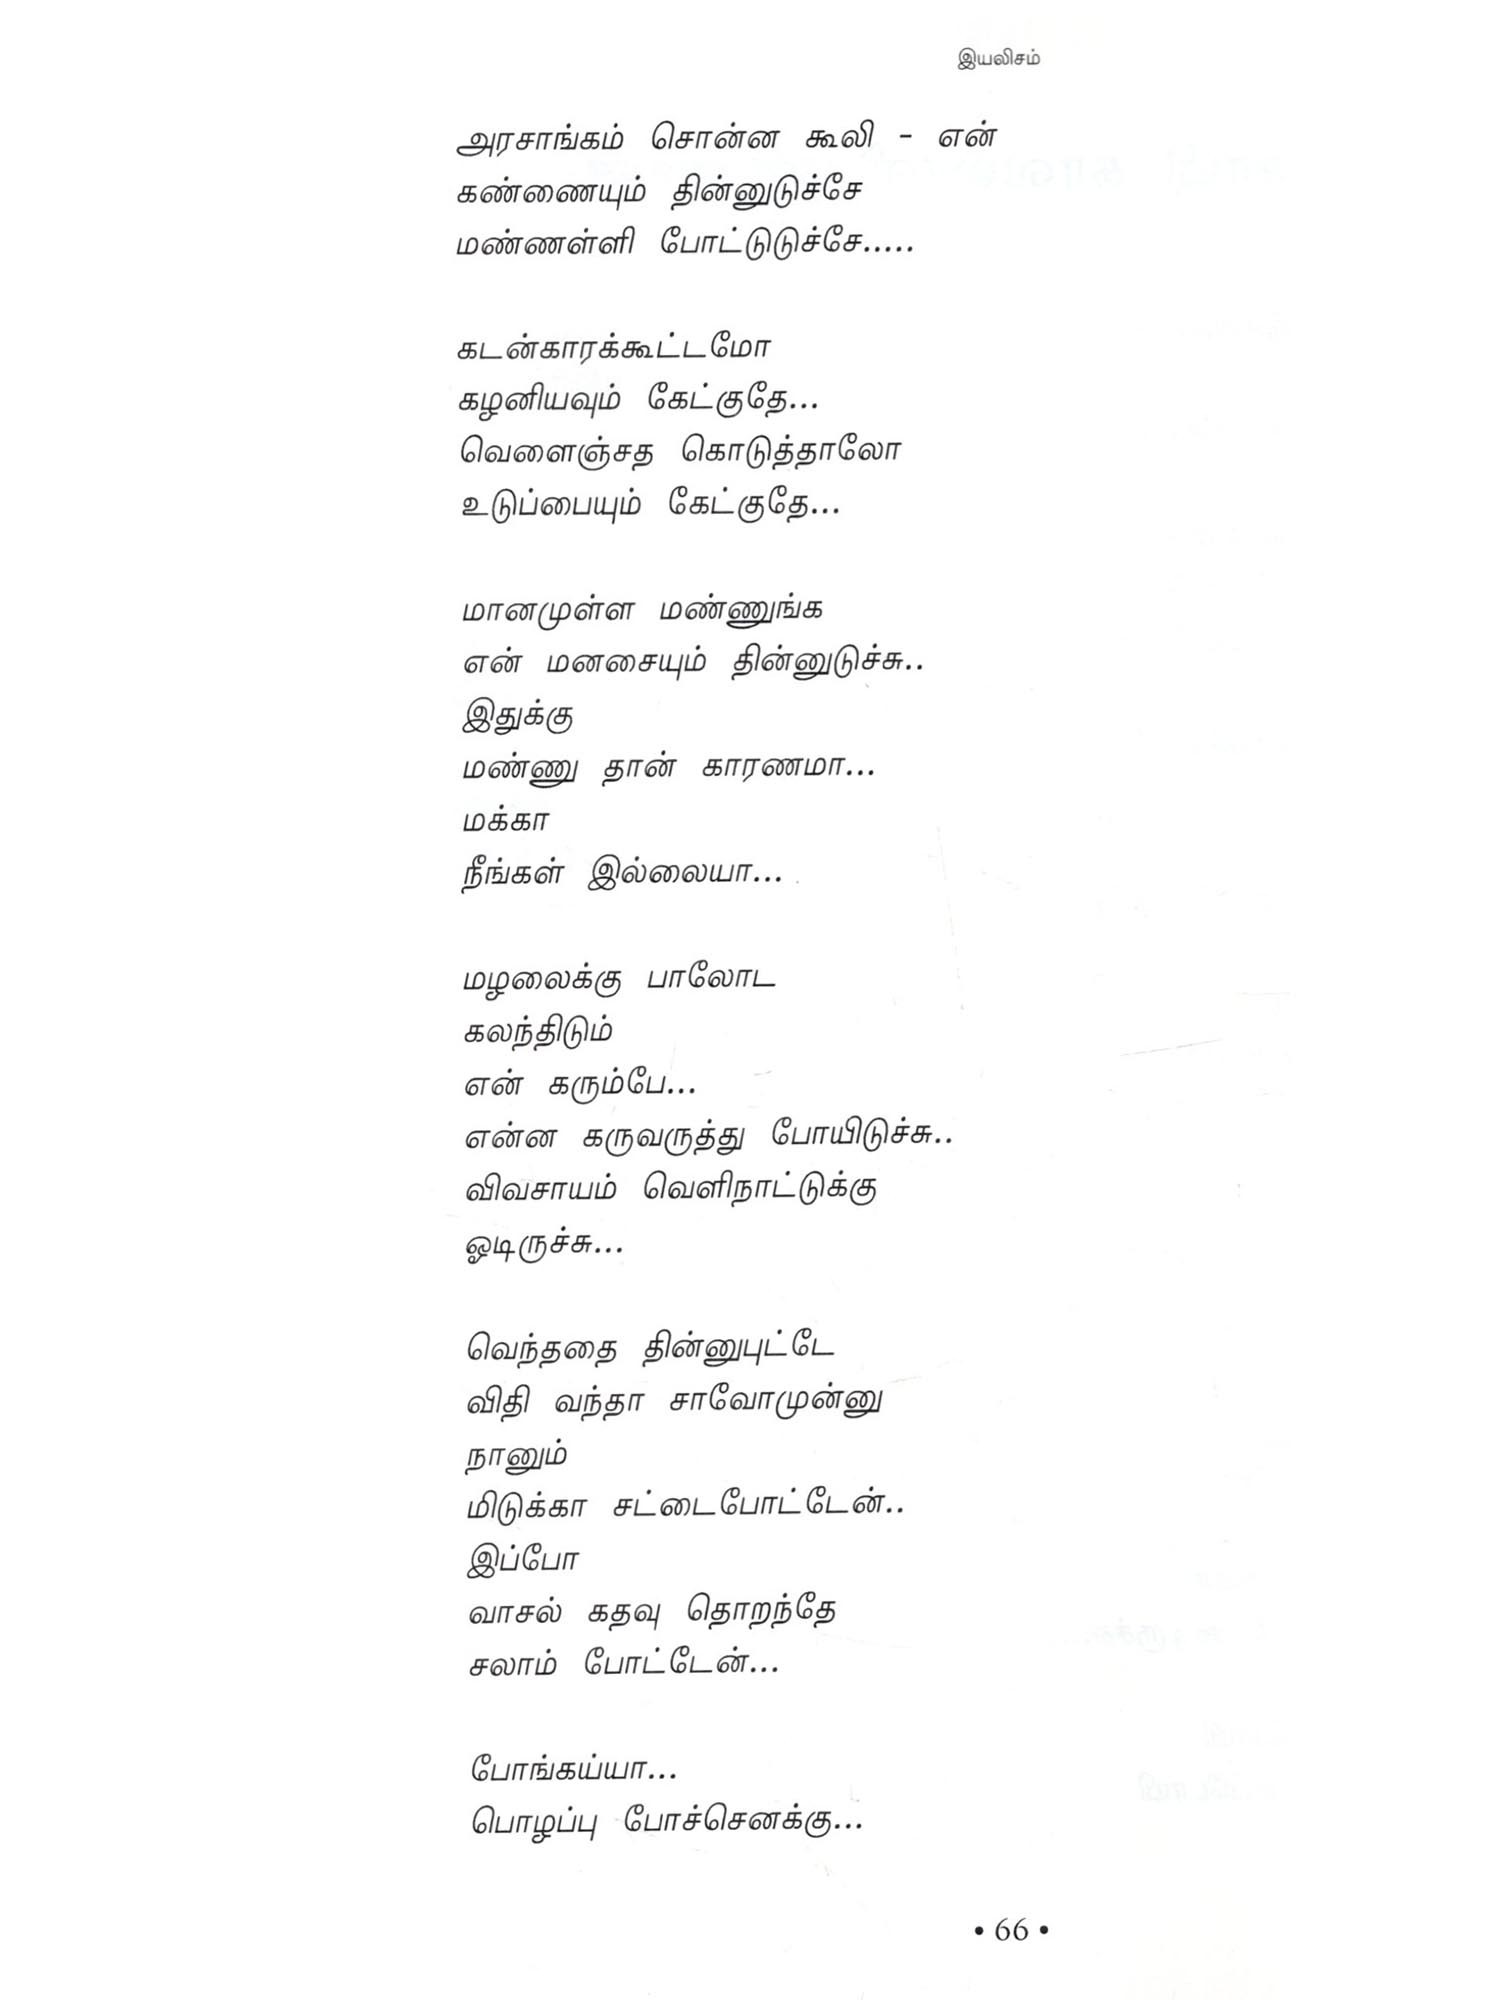 இயலிசம்
அரசாங்கம் சொன்ன கூலி - என்
கண்ணையும் தின்னுடுச்சே
மண்ணள்ளி போட்டுடுச்சே.....
கடன்காரக்கூட்டமோ
கழனியவும் கேட்குதே...
வெளைஞ்சத கொடுத்தாலோ
உடுப்பையும் கேட்குதே...
மானமுள்ள மண்ணுங்க
என் மனசையும் தின்னுடுச்சு..
இதுக்கு
மண்ணு தான் காரணமா...
மக்கா
நீங்கள் இல்லையா...
மழலைக்கு பாலோட
கலந்திடும்
என் கரும்பே...
என்ன கருவருத்து போயிடுச்சு..
விவசாயம் வெளிநாட்டுக்கு
ஓடிருச்சு...
வெந்ததை தின்னுபுட்டே
விதி வந்தா சாவோமுன்னு
நானும்
மிடுக்கா சட்டைபோட்டேன்..
இப்போ
வாசல் கதவு தொறந்தே
சலாம் போட்டேன்...
போங்கய்யா...
பொழப்பு போச்செனக்கு...
• 66 •